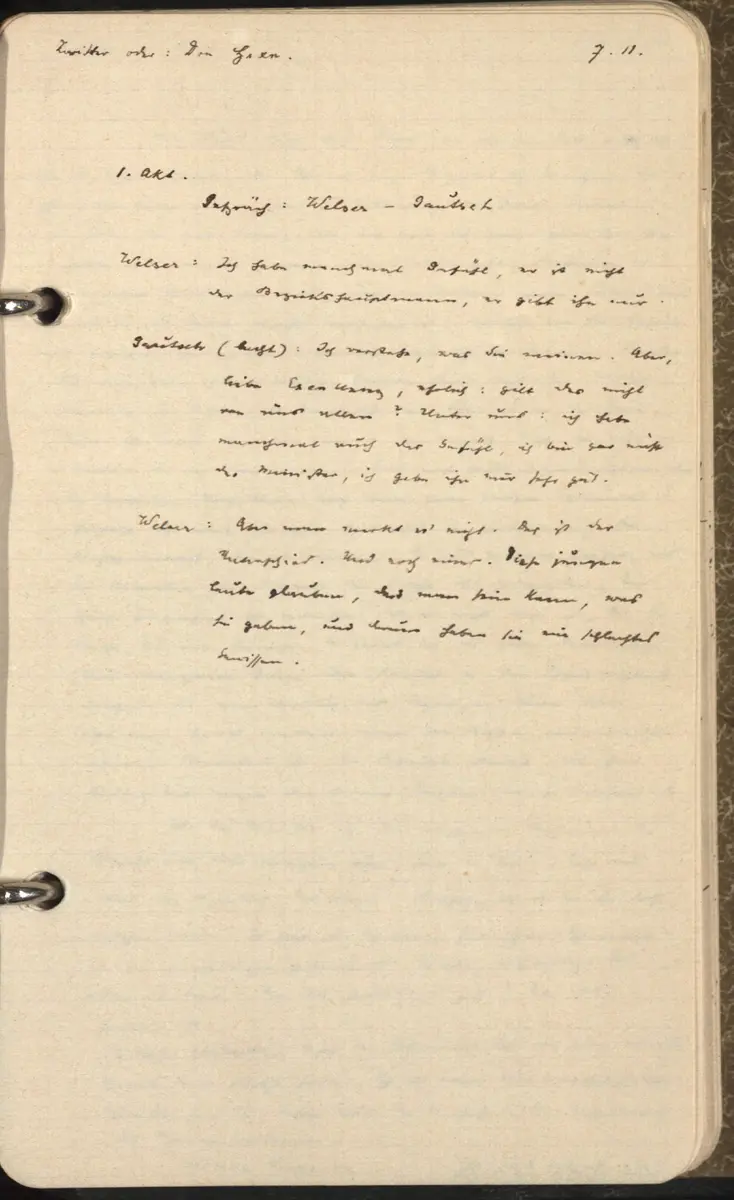 Zwitter oder: Die Hexen.
7. 11.
1. Akt.
Gespräch: Welser – Gautsch
Welser: Ich habe manchmal Gefühl, er ist nicht
der Bezirkshauptmann, er gibt ihn nur.
Gautsch (lacht): Ich verstehe, was Sie meinen. Aber,
liebe Exzellenz, ehrlich: gilt das nicht
von uns allen? Unter uns: ich habe
manchmal auch das Gefühl, ich bin gar nicht
der Minister, ich gebe ihn nur sehr gut.
Welser: Aber man merkt es nicht. Das ist der
Unterschied. Und noch eines. Diese jungen
Leute glauben, daß man sein kann, was
sie geben, und darum haben sie ein schlechtes
Gewissen.